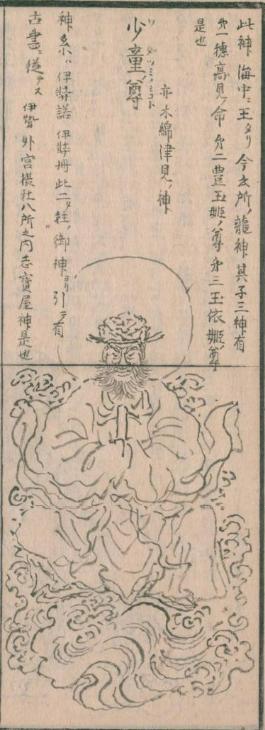 此神 海中ノ王タリ 今云所龍神 其子三神有
第一穂高見ノ命 第二豊玉姫ノ尊 第三玉依姫尊
是也
亦木綿津見ノ神
少童尊
神系ハ 伊弉諾 伊弉冊 此二タ柱ノ御神ヨリ引テ有
古書ニ従テス 伊勢外宮摂社八所之内志宝屋神是也